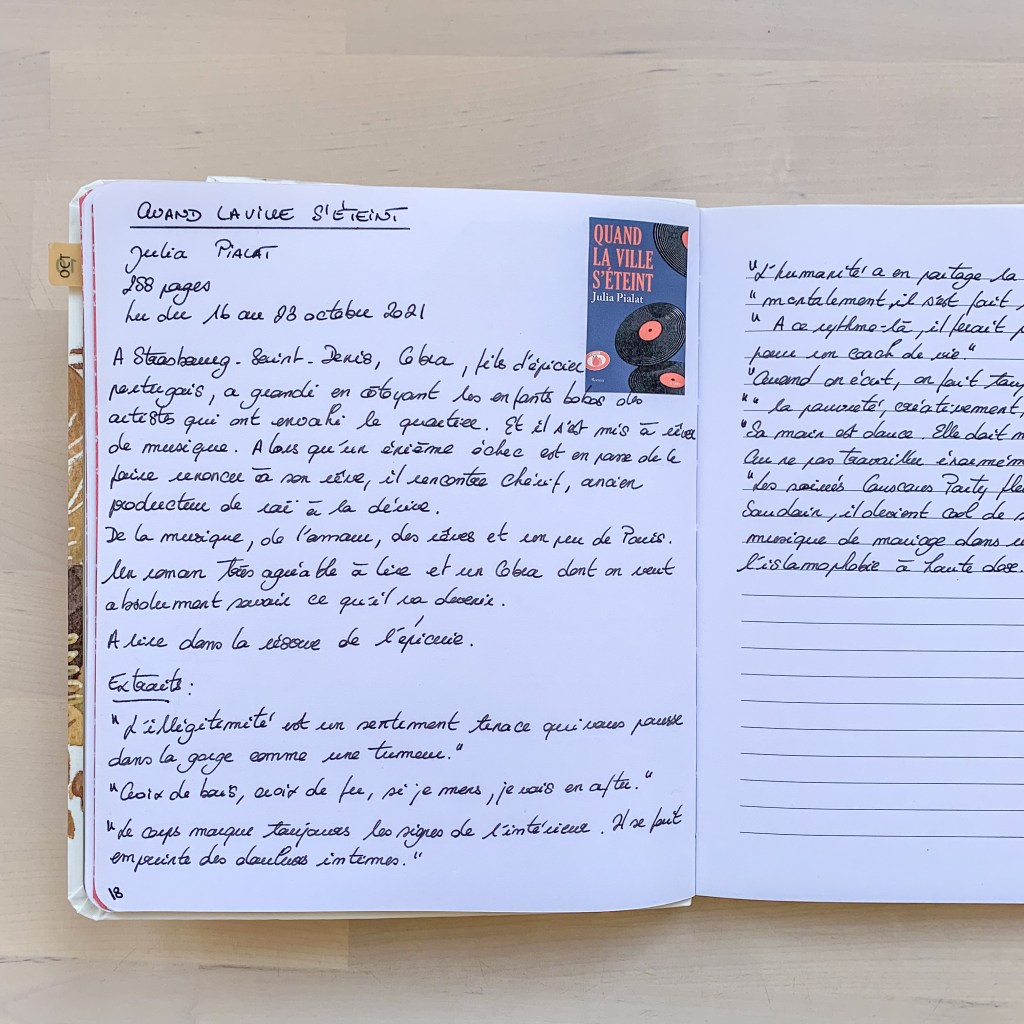 QUAND LA VILLE S'ÉTEINT
Julia PIALAT
288 pages
Lu du 16 au 23 octobre 2021
A Strasbourg-Saint-Denis, Cobra, fils d'épicier
portugais, a grandi en côtoyant les enfants bobos des
artistes qui ont envahi le quartier. Et il s'est mis à rêver
de musique. Alors qu'un énième échec est en passe de le
faire renoncer à son rêve, il rencontre Chérif, ancien
producteur de raï à la dérive.
De la musique, de l'amour, des rêves et un peu de Paris.
Un roman très agréable à lire et un Cobra dont on veut
absolument savoir ce qu'il va devenir.
A lire dans la réserve de l'épicerie.
Extraits :
"L'illégitimité est un sentiment tenace qui vous pousse
dans la gorge comme une tumeur."
"Croix de bois, croix de fer, si je mens, je vais en after."
"Le corps marque toujours les signes de l'intérieur. Il se fait
empreinte des douleurs internes."
18
OCT
QUAND
LA VILLE
S'ÉTEINT
Julia Pialat
"L'humanité a en partage la
"mentalement, il s'est fait
"A ce rythme-là, il ferait
pour un coach de vie."
"Quand on écrit, on fait
"" la pauvreté, créativement,
"Sa main est douce. Elle doit
Ou ne pas travailler énormément
"Les soirées Couscous Party
Soudain, il devient cool de
musique de mariage dans
l'islamophobie à haute dose.